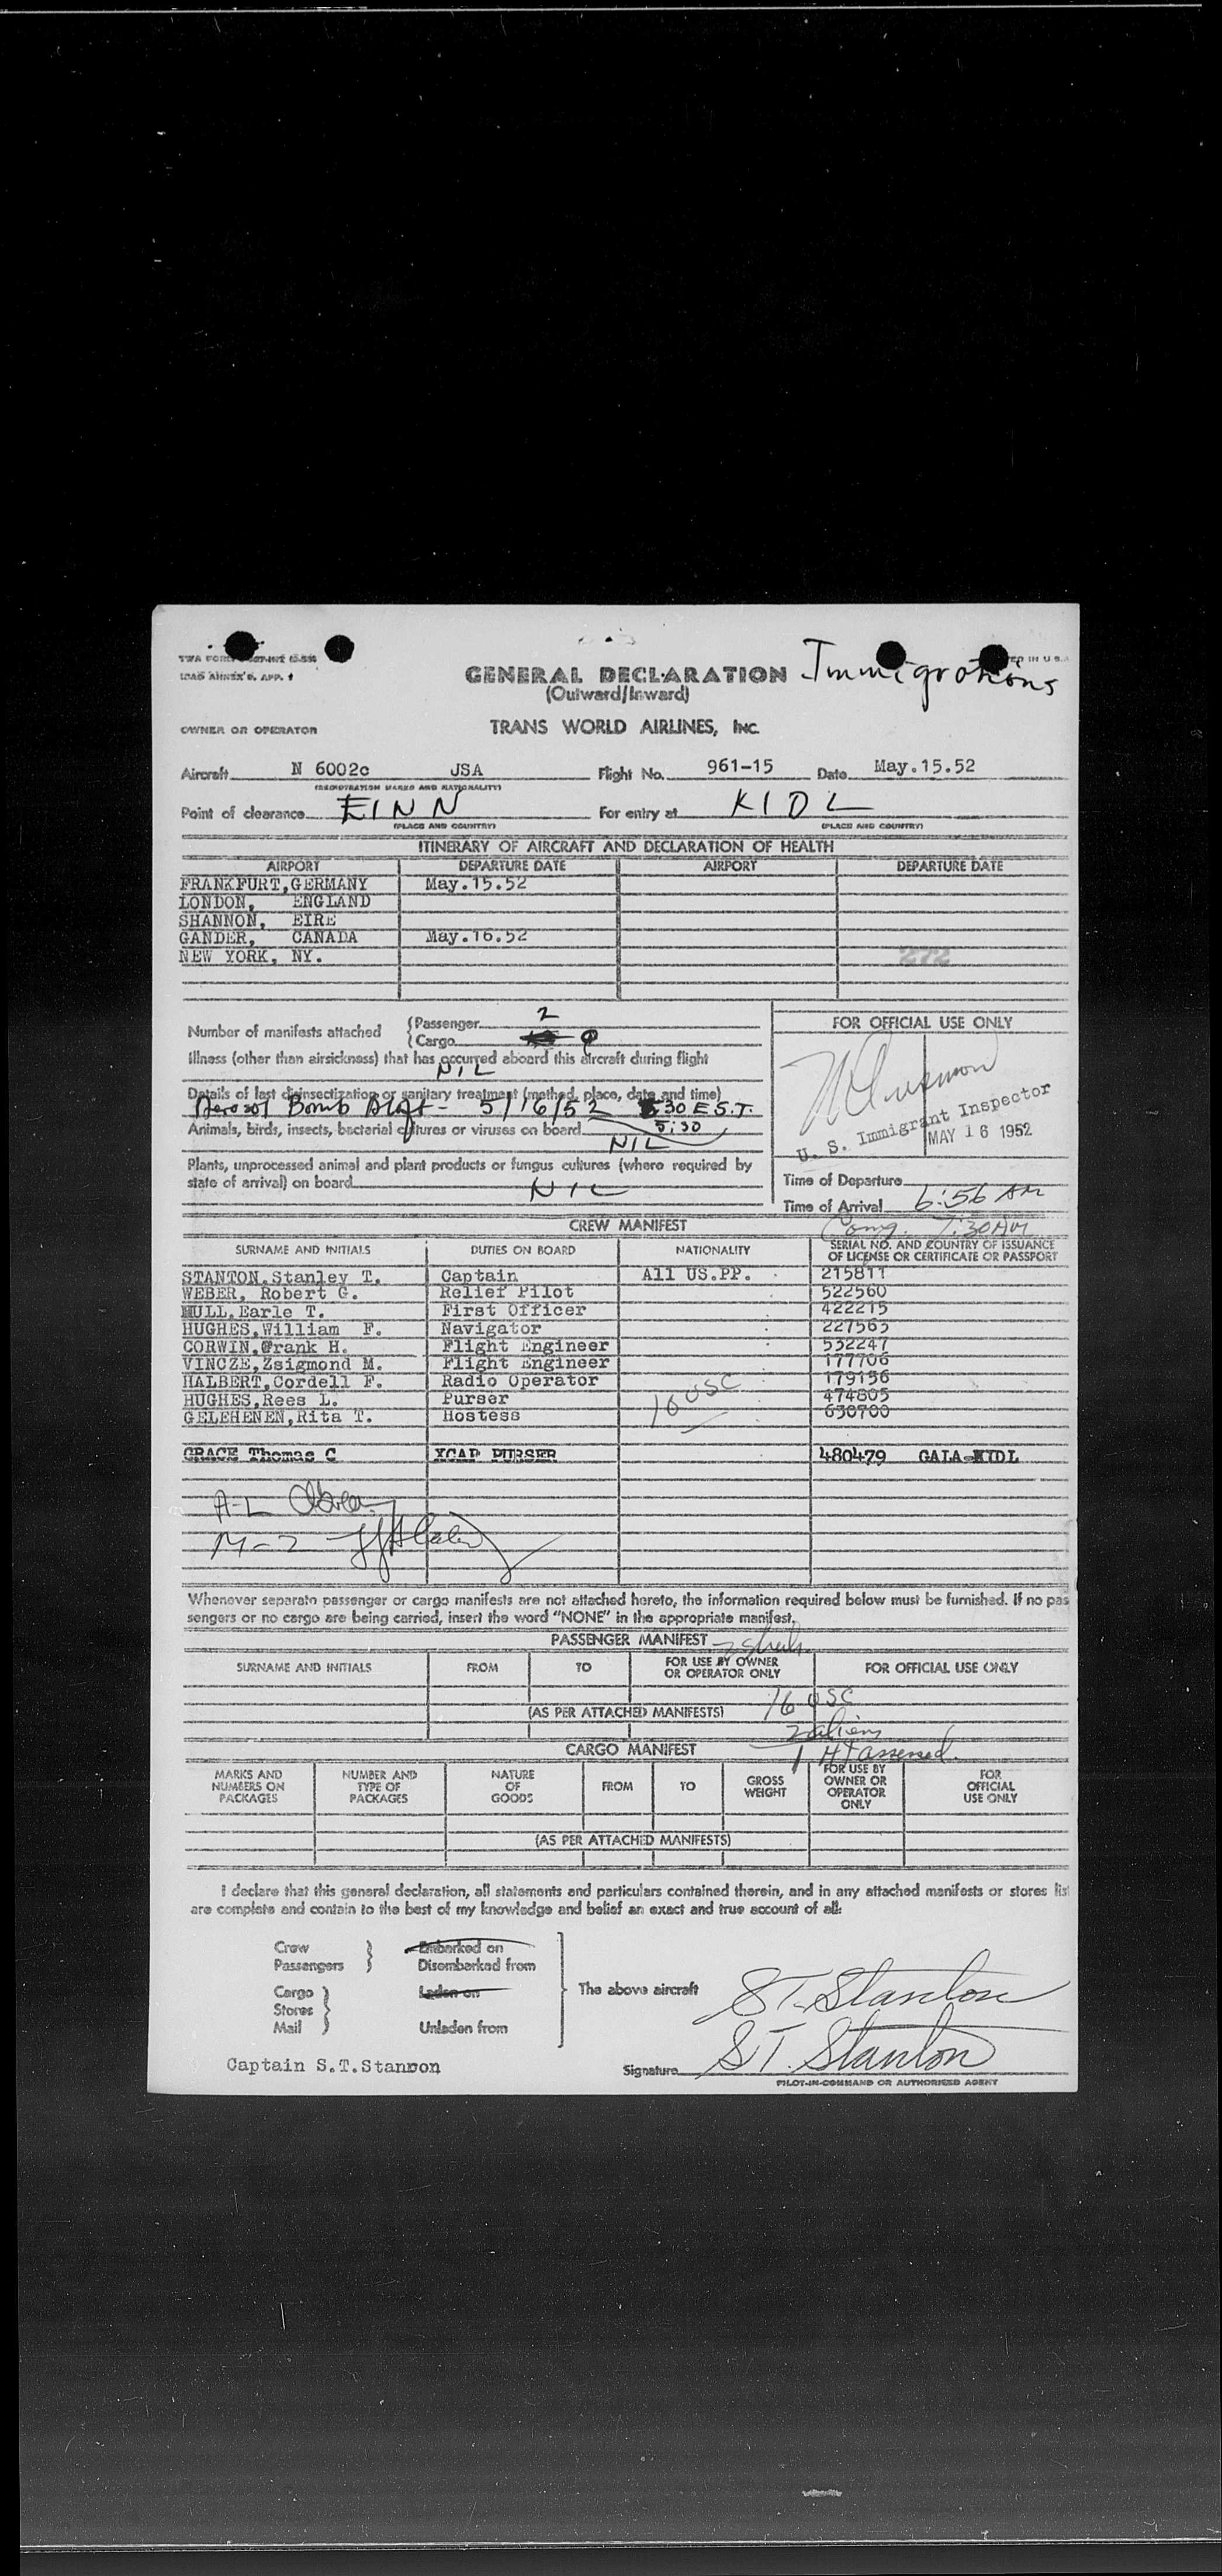 Immigrations
ICAO ANNEX 9, APP. 1
GENERAL DECLARATION
(Outward/Inward)
OWNER OR OPERATOR TRANS WORLD AIRLINES, INC.
Aircraft N 6002c JSA Flight No. 961-15 Date May.15.52
(REGISTRATION MARKS AND NATIONALITY)
Point of clearance EINN For entry at KIDL
(PLACE AND COUNTRY) (PLACE AND COUNTRY)
ITINERARY OF AIRCRAFT AND DECLARATION OF HEALTH
AIRPORT DEPARTURE DATE AIRPORT DEPARTURE DATE
FRANKFURT,GERMANY May.15.52
LONDON, ENGLAND
SHANNON, EIRE
GANDER, CANADA May.16.52
NEW YORK, NY.
272
Number of manifests attached
Passenger 2
Cargo
FOR OFFICIAL USE ONLY
Illness (other than airsickness) that has occurred aboard this aircraft during flight
NIL
Details of last disinsectization or sanitary treatment (method, place, date and time)
Aerosol Bomb 5/16/52 530 E.S.T.
5:30
Animals, birds, insects, bacterial cultures or viruses on board
NIL
Plants, unprocessed animal and plant products or fungus cultures (where required by
state of arrival) on board NIL
U. S. Immigrant Inspector
MAY 16 1952
Time of Departure
Time of Arrival 6:56 AM
7:30 AM
CREW MANIFEST
SURNAME AND INITIALS DUTIES ON BOARD NATIONALITY SERIAL NO. AND COUNTRY OF ISSUANCE
OF LICENSE OR CERTIFICATE OR PASSPORT
STANTON,Stanley T. Captain All US.PP. 215811
WEBER, Robert G. Relief Pilot 522560
MULL,Earle T. First Officer 422215
HUGHES,William F. Navigator 227565
CORWIN,Frank H. Flight Engineer 532247
VINCZE,Zsigmond M. Flight Engineer 177706
HALBERT,Cordell F. Radio Operator 179156
HUGHES,Rees L. Purser 474805
GELEHENEN,Rita T. Hostess 630700
10 USC
GRACE Thomas C XCAP PURSER 480479 GALA-KIDL
A-L
M-2
Whenever separate passenger or cargo manifests are not attached hereto, the information required below must be furnished. If no pas
sengers or no cargo are being carried, insert the word "NONE" in the appropriate manifest.
PASSENGER MANIFEST 2 sheets
SURNAME AND INITIALS FROM TO FOR USE BY OWNER
OR OPERATOR ONLY FOR OFFICIAL USE ONLY
16 USC
(AS PER ATTACHED MANIFESTS)
2 aliens
1 HT assessed.
CARGO MANIFEST
MARKS AND
NUMBERS ON
PACKAGES
NUMBER AND
TYPE OF
PACKAGES
NATURE
OF
GOODS
FROM
TO
GROSS
WEIGHT
FOR USE BY
OWNER OR
OPERATOR
ONLY
FOR
OFFICIAL
USE ONLY
(AS PER ATTACHED MANIFESTS)
I declare that this general declaration, all statements and particulars contained therein, and in any attached manifests or stores lis
are complete and contain to the best of my knowledge and belief an exact and true account of all:
Crew Embarked on
Passengers Disembarked from
Cargo Laden on The above aircraft S.T. Stanton
Stores
Mail Unladen from
Captain S.T.Stanton Signature S.T. Stanton
PILOT-IN-COMMAND OR AUTHORIZED AGENT